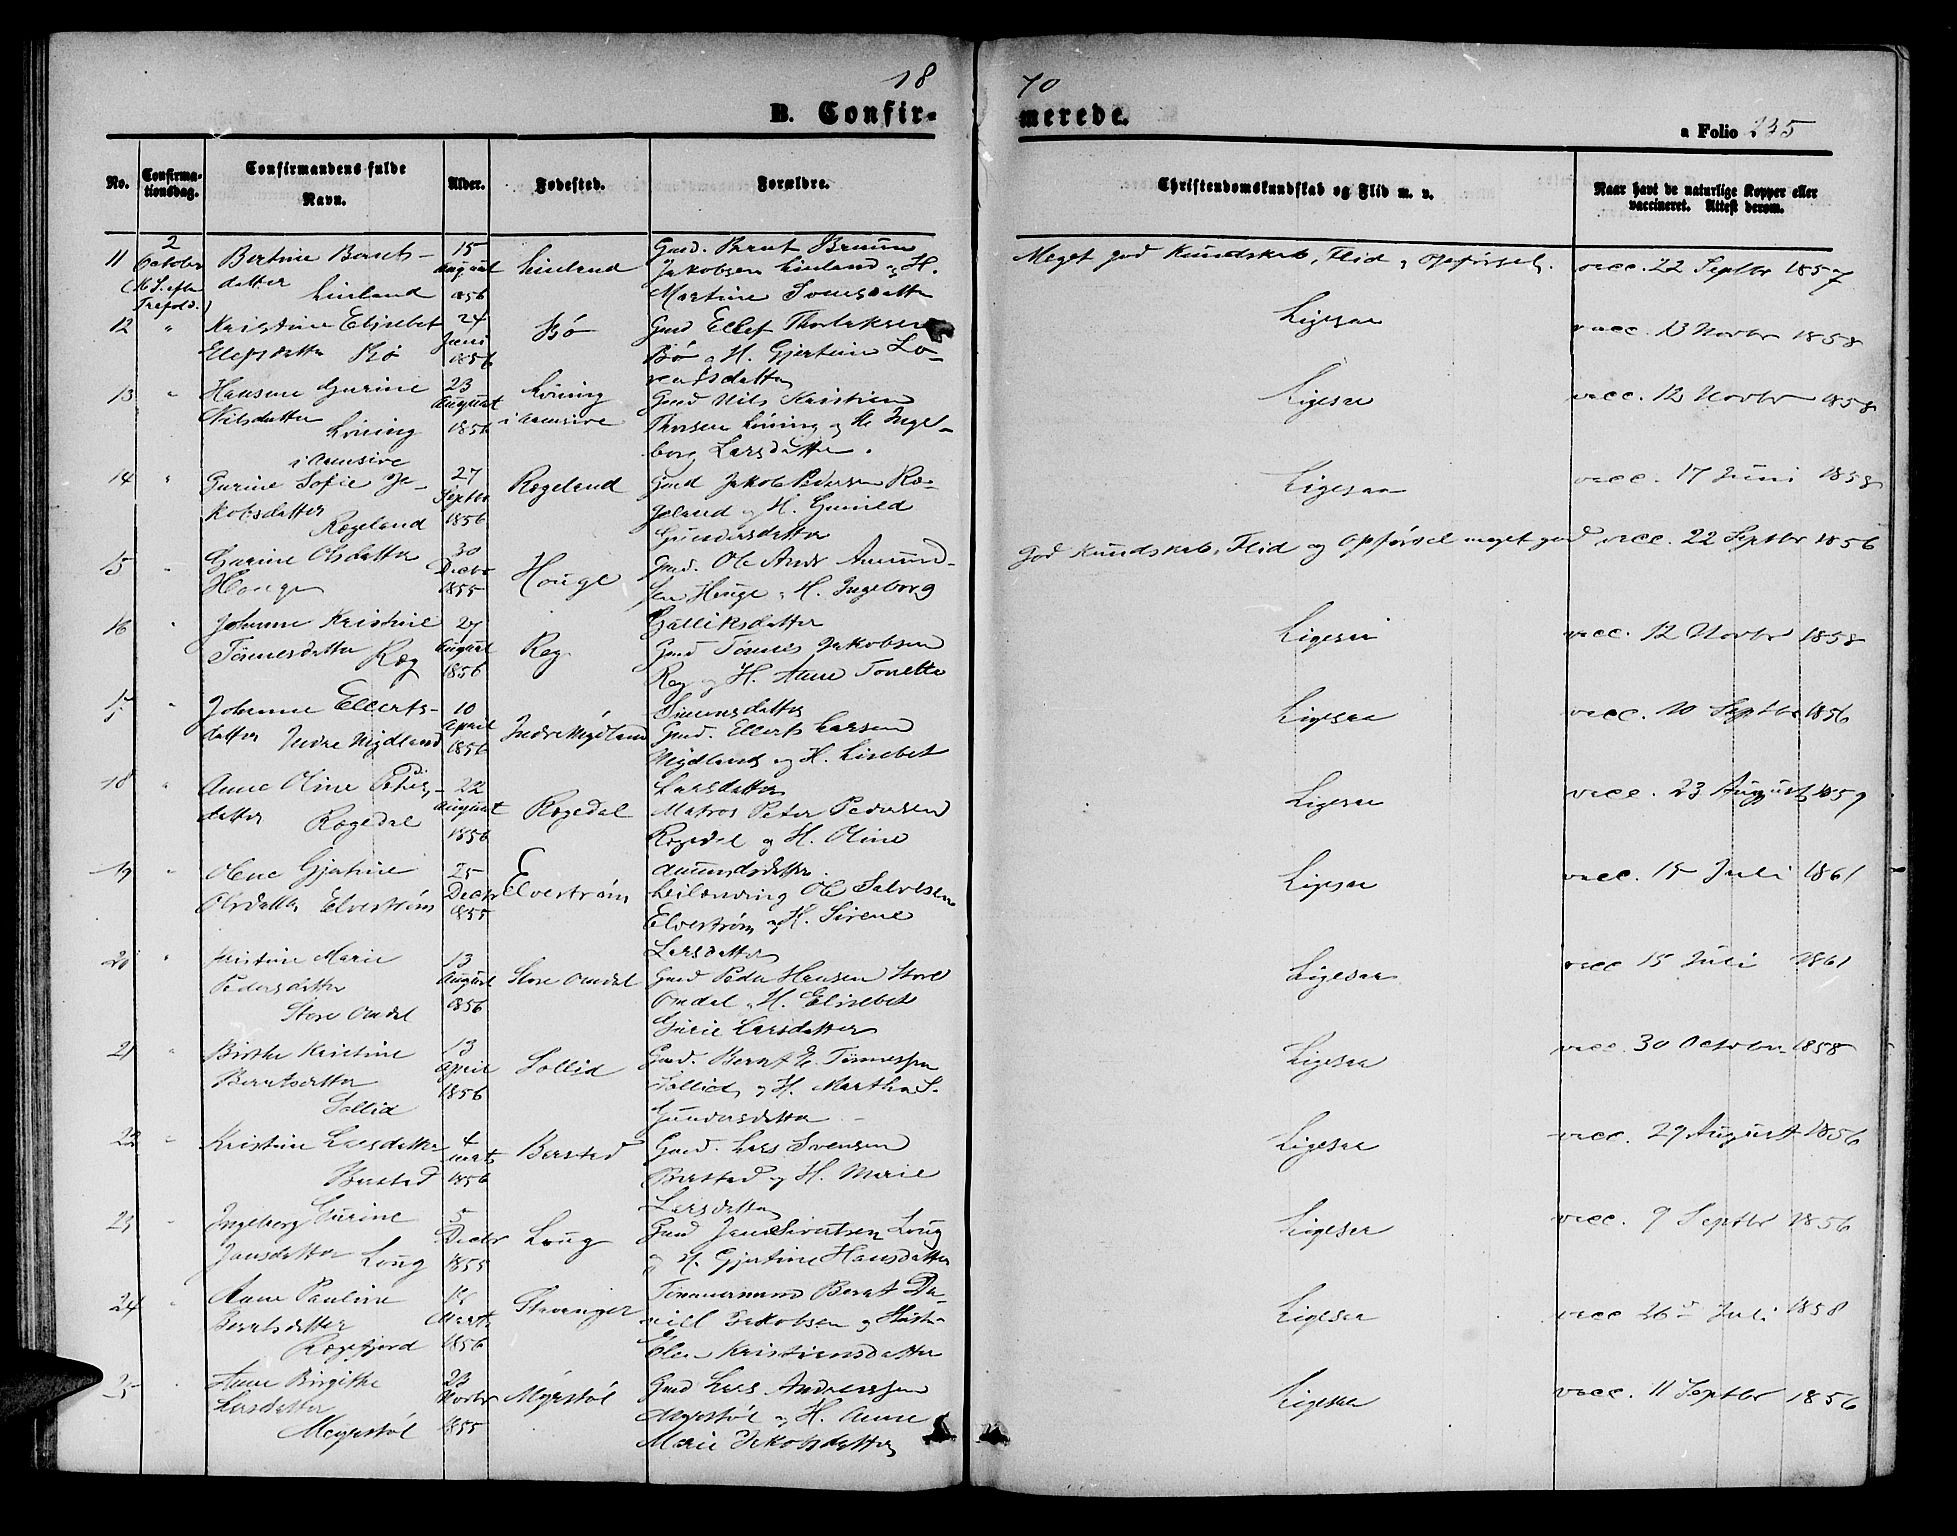 18 70
B. Confirmerede.
a Folio 235
No. Confirmationsdag. Confirmandens fulde Navn. Alder. Fødested. Forældre. Christendomskundskab og Flid m. v. Naar havt de naturlige Kopper eller vaccineret. Attest derom.
11 2 October Bertine Bernts- 15 August 1856 Gmd. Bernt
datter Jakobsen og H.
Martine
Meget god Kundskab, Flid og Opførsel. vacc. 22 Septbr 1857
12 " Kristine Elisebet 24 Juni 1856 Bø Gmd Ellef Thorlaksen
Ellefsdatter Bø Bø og H. Gjertine Lo-
rentsdatter
Ligesaa vacc. 13 Novbr 1858
13 " Hansine Gurine 23 August 1856 Gmd Nils Kristian
Nilsdatter Thorsen og H. Inge-
borg Larsdatter.
Ligesaa vacc. 12 Novbr 1858
14 " Gurine Sofie Ja- 27 Septbr 1856 Rægeland Gmd Jakob Pedersen Ræ-
kobsdatter geland og H. Gunild
Rægeland Gundersdatter
Ligesaa vacc. 17 Juni 1858
15 " Gurine Olsdatter 30 Decbr 1855 Houge Gmd. Ole Andr Amund-
Houge sen Houge og H. Ingeborg
Gulliksdatter
God Kundskab, Flid og Opførsel meget god vacc. 22 Septbr 1856
16 " Johanne Kristine 27 August 1856 Ræg Gmd Tønnes Jakobsen
Tønnesdatter Ræg Ræg og H. Anne Tonette
Simonsdatter
Ligesaa vacc. 12 Novbr 1858
" Johanne Ellerts- 10 April 1856 Indre Mydland Gmd. Ellert Larsen
datter Indre Mydland Mydland og H. Lisebet
Larsdatter
Ligesaa vacc. 10 Septbr 1856
18 " Anne Oline Peters- 22 August 1856 Rægedal Matros Peter Pedersen
datter Rægedal Rægedal og H. Oline
Amundsdatter.
Ligesaa vacc. 23 August 1859
19 " Olene Gjertine 25 Decbr 1855 Elvestrøm Leilænding Ole Salvesen
Olsdatter Elvestrøm Elvestrøm og H. Sirene
Larsdatter
Ligesaa vacc. 15 Juli 1861
20 " Kristine Marie 13 August 1856 Store Omdal Gmd Peder Hansen Store
Pedersdatter Omdal og H. Elisebet
Store Omdal Gurie Larsdatter
Ligesaa vacc 15 Juli 1861
21 " Birthe Kristine 13 April 1856 Sollid Gmd. Bernt Tønnessen
Berntsdatter Sollid og H. Martha S.
Sollid Gundersdatter
Ligesaa vacc. 30 October 1858
22 " Kristine Larsdatter 4 Marts 1856 Berstad Gmd. Lars Svensen
Berstad Berstad og H. Marie
Larsdatter
Ligesaa vacc. 29 August 1856
23 " Ingeborg Gurine 5 Decbr 1855 Loug Gmd Jens Sivertsen Loug
Jensdatter Loug og H. Gjertine Hansdatter
Ligesaa vacc. 9 Septbr 1856
24 " Anne Pauline Marts 1856 Stavanger Tømmermand Bernt Da-
Berntsdatter niel Jakobsen og Hustr.
Rægefjord Elen Kristiansdatter
Ligesaa vacc 26 Juli 1858
25 " Anne Birgithe 23 Novbr 1855 Myrstøl Gmd Lars Andreassen
Larsdatter Myrstøl og H. Anne
Myrstøl Marie Jakobsdatter
Ligesaa vacc. 11 Septbr 1856